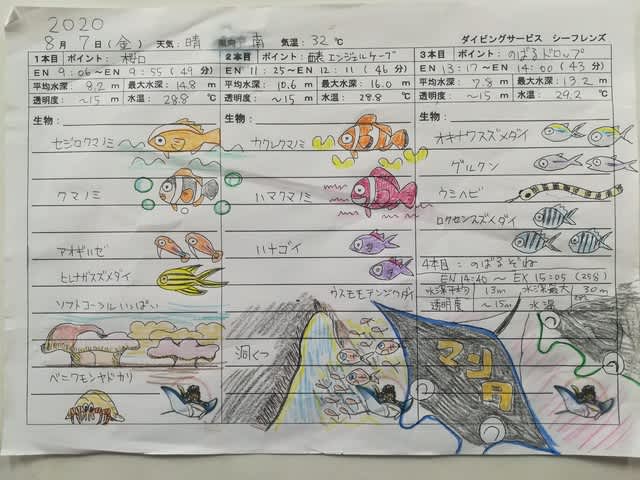 2020
8月 7日(金) 天気: 晴 風向 南 気温: 32℃ ダイビングサービス シーフレンズ
1本目 ポイント: 桜口
EN 9:06〜EN 9:55 (49 分)
平均水深: 8.2 m 最大水深: 14.8 m
透明度: 〜15 m 水温: 28.8 ℃
生物:
セジロクマノミ
クマノミ
アオギハゼ
ヒレナガスズメダイ
ソフトコーラルいっぱい
ベニワモンヤドカリ
2本目 ポイント: エンジェルケーブ
EN 11:25〜EN 12:11 (46 分)
平均水深: 10.6 m 最大水深: 16.0 m
透明度: 〜15 m 水温: 28.8 ℃
生物:
カクレクマノミ
ハマクマノミ
ハナゴイ
ウスモモテンジクダイ
洞くつ
3本目 ポイント: のばるドロップ
EN 13:17〜EN 14:00 (43 分)
平均水深: 7.8 m 最大水深: 13.2 m
透明度: 〜15 m 水温: 29.2 ℃
生物:
オキナワスズメダイ
グルクン
ウミヘビ
ロクセンスズメダイ
4本目: のばるそね
EN 14:40 〜 EX 15:05 (25分)
水深平均 13m 水深最大 30m
透明度 〜15m 水温
マンタ